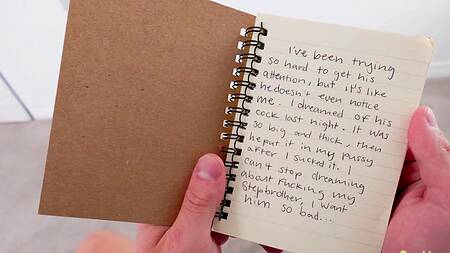 I've been trying
so hard to get his
attention, but it's like
he doesn't even notice
me. I dreamed of his
cock last night. It was
so big and thick, then
he put it in my pussy
after I sucked it. I
can't stop dreaming
about Fucking my
Stepbrother, I want
him so bad...